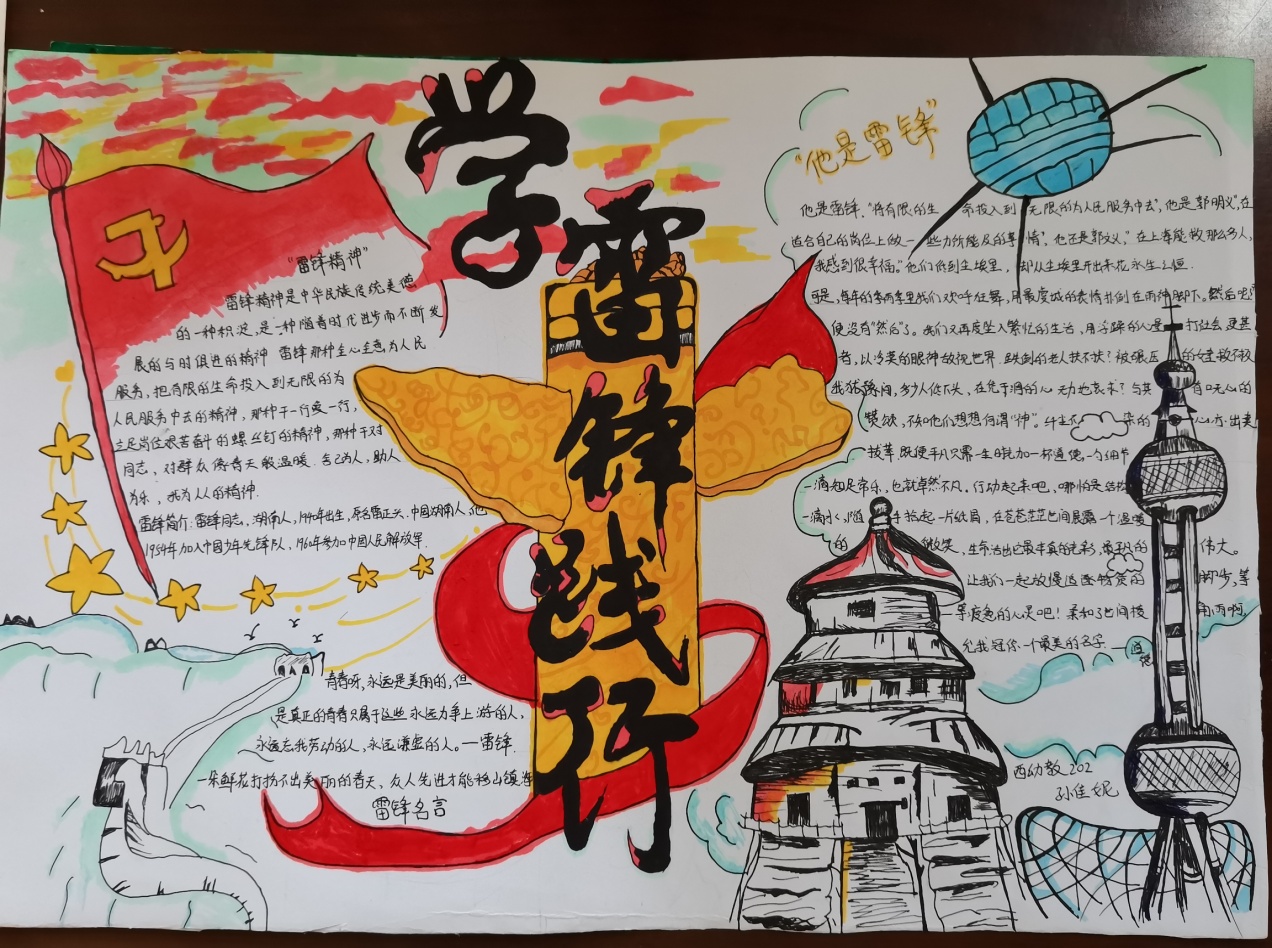 学雷锋践行
"雷锋精神"
雷锋精神是中华民族传统美德
的一种积淀,是一种随着时代进步而不断发
展的与时俱进的精神 雷锋那种全心全意为人民
服务,把有限的生命投入到无限的为
人民服务中去的精神,那种干一行爱一行,
立足岗位艰苦奋斗的螺丝钉的精神,那种于对
同志,对群众像春天般温暖.舍己为人,助人
为乐,我为人人的精神.
雷锋简介:雷锋同志,湖南人,1940年出生,原名雷正兴.中国湖南人,他
1954年加入中国少年先锋队,1960年参加中国人民解放军.
青春呀,永远是美丽的,但
是真正的青春只属于这些永远力争上游的人,
永远忘我劳动的人,永远谦虚的人。—雷锋.
一朵鲜花打扮不出美丽的春天,众人先进才能移山填海
雷锋名言
"他是雷锋"
他是雷锋,"将有限的生命投入到无限的为人民服务中去",他是郭明义",在
适合自己的岗位上做一些力所能及的事情".他还是郭文义,"在上海能做那么多人,
我感到很幸福。"他们低到尘埃里,却从尘埃里开出来花永生之恒.
可是,每年的春雨季里我们欢呼狂舞,用最虔诚的表情扑倒在雨神脚下。然后呢?
便没有"然后"了。我们又再度坠入繁忙的生活,用浮躁的心量打社会更甚
者,以冷漠的眼神放视世界.跌倒的老人扶不扶?被碾压的女童救不救
多少人低下头,在
赞欤,不知他们想想何谓"神"。
拔萃.既使平凡只需一生能加一杯
一滴知足常乐,也就卓然不凡。行动起来吧,哪怕是
一滴水,随手拾起一片纸屑,在茫茫茫世间展露一个温暖
的微笑,生命活出它最本真的光彩,最平凡的伟大。
让我们一起放慢追逐物质的脚步,等
等疲惫的心灵吧!柔和了世间棱角雨啊,
允我冠你一个最美的名字.—道德
西幼教202
孙佳妮